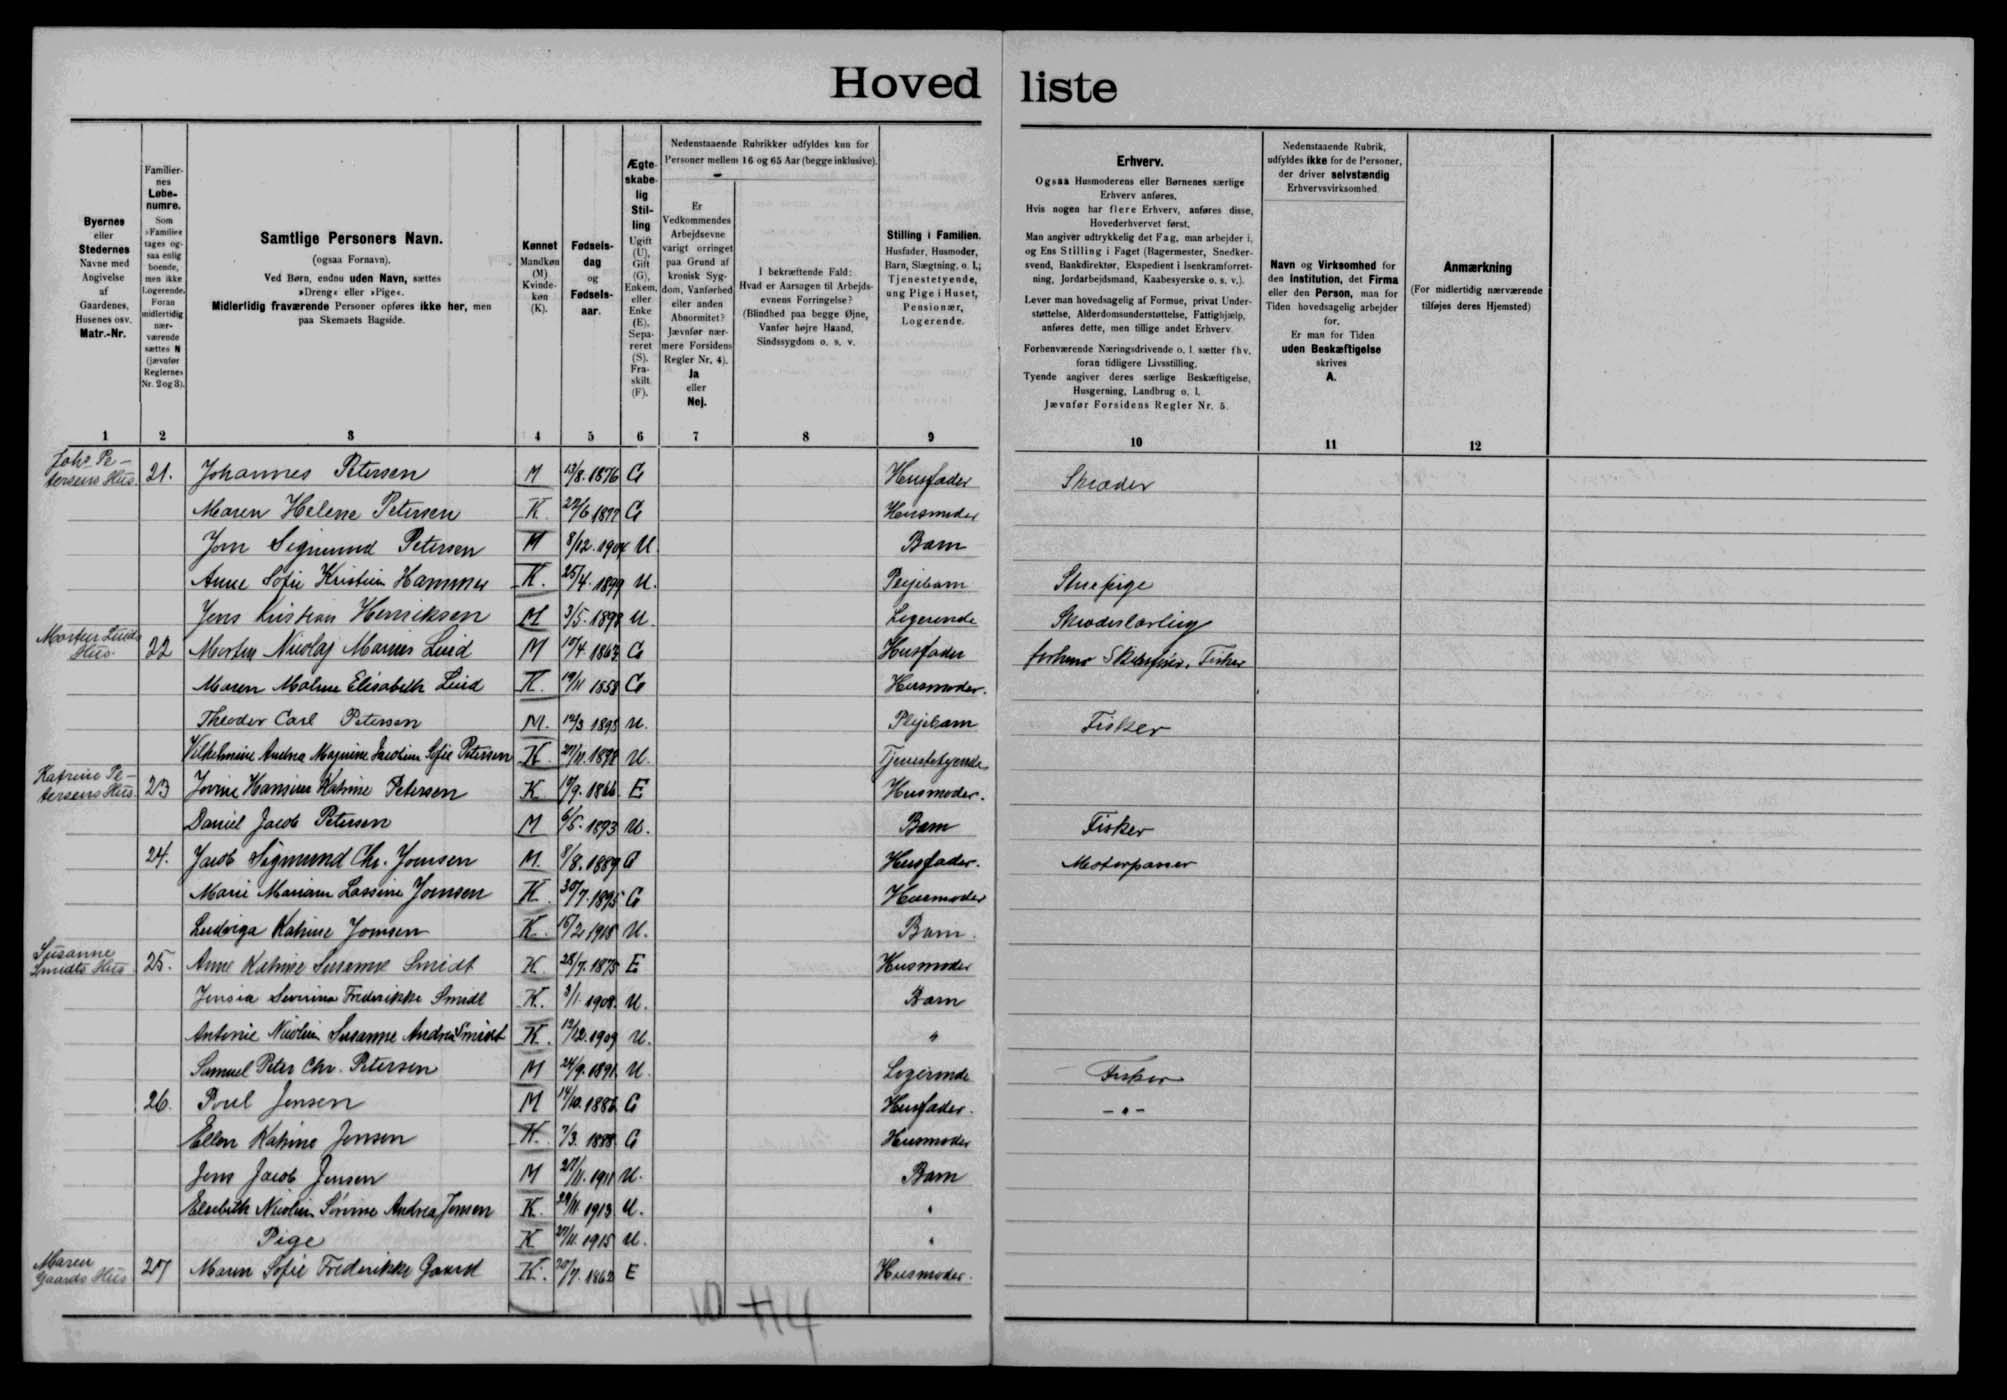 Hoved liste
Byernes
eller
Stedernes
Navne med
Angivelse
af
Gaardenes,
Husenes osv.
Matr.-Nr.
Familier-
nes
Løbe-
numre.
Som
»Familie«
tages og-
saa enlig
boende,
men ikke
Logerende.
Foran
midlertidig
nær-
værende
sættes N
(jævnfør
Reglernes
Nr. 2 og 3).
Samtlige Personers Navn.
(ogsaa Fornavn).
Ved Børn, endnu uden Navn, sættes
»Dreng« eller »Pige«.
Midlertidig fraværende Personer opføres ikke her, men
paa Skemaets Bagside.
Kønnet
Mandkøn
(M)
Kvinde-
køn
(K).
Fødsels-
dag
og
Fødsels-
aar.
Ægte-
skabe-
lig
Stil-
ling
Ugift
(U),
Gift
(G),
Enkem.
eller
Enke
(E),
Sepa-
reret
(S).
Fra-
skilt
(F).
Nedenstaaende Rubrikker udfyldes kun for
Personer mellem 16 og 65 Aar (begge inklusive).
Er
Vedkommendes
Arbejdsevne
varigt forringet
paa Grund af
kronisk Syg-
dom, Vanførhed
eller anden
Abnormitet?
Jævnfør nær-
mere Forsidens
Regler Nr. 4).
Ja
eller
Nej.
I bekræftende Fald:
Hvad er Aarsagen til Arbejds-
evnens Forringelse?
(Blindhed paa begge Øjne,
Vanfør højre Haand,
Sindssygdom o. s. v.
Stilling i Familien.
Husfader, Husmoder,
Barn, Slægtning. o. l.;
Tjenestetyende,
ung Pige i Huset,
Pensionær,
Logerende.
Erhverv.
Ogsaa Husmoderens eller Børnenes særlige
Erhverv anføres.
Hvis nogen har flere Erhverv, anføres disse,
Hovederhvervet først.
Man angiver udtrykkelig det Fag, man arbejder i,
og Ens Stilling i Faget (Bagermester, Snedker-
svend, Bankdirektør, Ekspedient i Isenkramforret-
ning, Jordarbejdsmand, Kaabesyerske o. s. v.).
Lever man hovedsagelig af Formue, privat Under-
støttelse, Alderdomsunderstøttelse, Fattighjælp,
anføres dette, men tillige andet Erhverv.
Forhenværende Næringsdrivende o. l. sætter fhv.
foran tidligere Livsstilling.
Tyende angiver deres særlige Beskæftigelse,
Husgerning, Landbrug o. l.
Jævnfør Forsidens Regler Nr. 5.
Nedenstaaende Rubrik,
udfyldes ikke for de Personer,
der driver selvstændig
Erhvervsvirksomhed.
Navn og Virksomhed for
den Institution, det Firma
eller den Person, man for
Tiden hovedsagelig arbejder
for.
Er man for Tiden
uden Beskæftigelse
skrives
A.
Anmærkning
(For midlertidig nærværende
tilføjes deres Hjemsted)
1 2 3 4 5 6 7 8 9 10 11 12
Johs Pe-
tersens Hus. 21. Johannes Petersen M 13/8. 1876 G Husfader Skræder
Maren Helene Petersen K. 27/6 1877 G Husmoder
Jørn Sigmund Petersen M 8/12. 1904 U. Barn
Anne Sofie Kristine Hammer K. 25/4. 1899 U. Plejebarn Stuepige
Jens Kristian Henriksen M 3/5. 1898 U. Logerende Skræderlærling
Morten Linds
Hus. 22 Morten Nicolaj Marius Lind M 10/4. 1863 G Husfader Fisker
Maren Malene Elisabeth Lind K. 19/11 1858 G Husmoder.
Theodor Carl Petersen M. 12/3 1895 U. Plejebarn Fisker
Vilhelmine Andrea Magnine Jacobine Sofie Petersen K. 27/11. 1898 U. Tjenestetyende
Katrine Pe-
tersens Hus. 23 Jovine Hansine Katrine Petersen K 19/9. 1866 E Husmoder.
Daniel Jacob Petersen M 6/5. 1893 U. Barn Fisker
24. Jacob Sigmund Chr. Joensen M. 8/8. 1889 G Husfader. Motorpasser
Marie Mariane Lassine Joensen K. 30/7. 1895 G Husmoder
Ludviga Katrine Joensen K. 15/2 1915 U. Barn.
Susanne
Smidts Hus 25. Anne Katrine Susanne Smidt K. 28/7. 1875 E Husmoder
Jensia Severina Frederikke Smidt K. 3/1. 1908. U. Barn
Antonie Nicoline Susanne Andrea Smidt K. 12/12. 1909 U. "
Samuel Peter Chr. Petersen M 24/9. 1891. U. Logerende Fisker
26. Poul Jensen M 14/10. 1886 G Husfader. - " -
Ellen Katrine Jensen K. 7/3. 1888. G Husmoder
Jens Jacob Jensen M 27/11. 1911 U. Barn
Elsebeth Nicoline Sørine Andrea Jensen K. 29/11. 1913 U. "
Pige K 27/11. 1915 U. "
Maren
Gaards Hus 27 Maren Sofie Frederikke Gaard K. 20/7. 1862 E Husmoder.
10 + 14